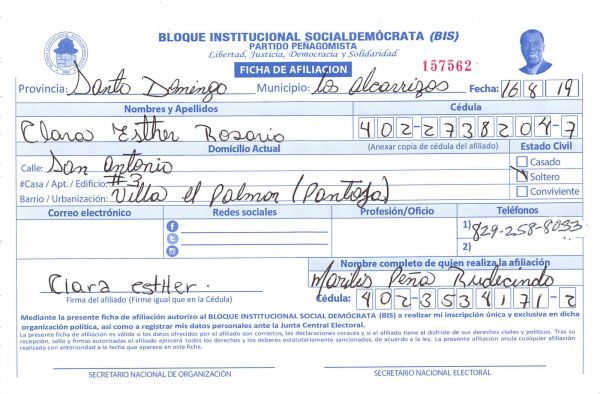 BLOQUE INSTITUCIONAL SOCIALDEMÓCRATA (BIS)
PARTIDO PEÑAGOMISTA
Libertad, Justicia, Democracia y Solidaridad
FICHA DE AFILIACION
157562
Provincia: Santo Domingo Municipio: los alcarrizos Fecha: 16 8 19
Nombres y Apellidos Cédula
Clara Esther Rosario 402-2738204-7
Domicilio Actual (Anexar copia de cédula del afiliado) Estado Civil
Calle: San antonio Casado
#Casa / Apt. / Edificio: #3 Soltero
Barrio / Urbanización: Villa el Palmar (Pantoja) Conviviente
Correo electrónico Redes sociales Profesión/Oficio Teléfonos
1) 829-258-8033
2)
Nombre completo de quien realiza la afiliación
Clara estHer. Marilis Peña Rudecindo
Firma del afiliado (Firme igual que en la Cédula) Cédula: 402-3534171-2
Mediante la presente ficha de afiliación autorizo al BLOQUE INSTITUCIONAL SOCIAL DEMÓCRATA (BIS) a realizar mi inscripción única y exclusiva en dicha
organización política, así como a registrar mis datos personales ante la Junta Central Electoral.
La presente ficha de afiliación es válida si los datos ofrecidos por el afiliado son correctos, las declaraciones veraces y si el afiliado tiene el disfrute de sus derechos civiles y políticos. Tras su
recepción, sello y firmas autorizadas el afiliado ejercerá todos los derechos y los deberes estatutariamente sancionados, de acuerdo a la ley. La presente afiliación anula cualquier afiliación
realizada con anterioridad a la fecha que aparece en esta ficha.
SECRETARIO NACIONAL DE ORGANIZACIÓN SECRETARIO NACIONAL ELECTORAL